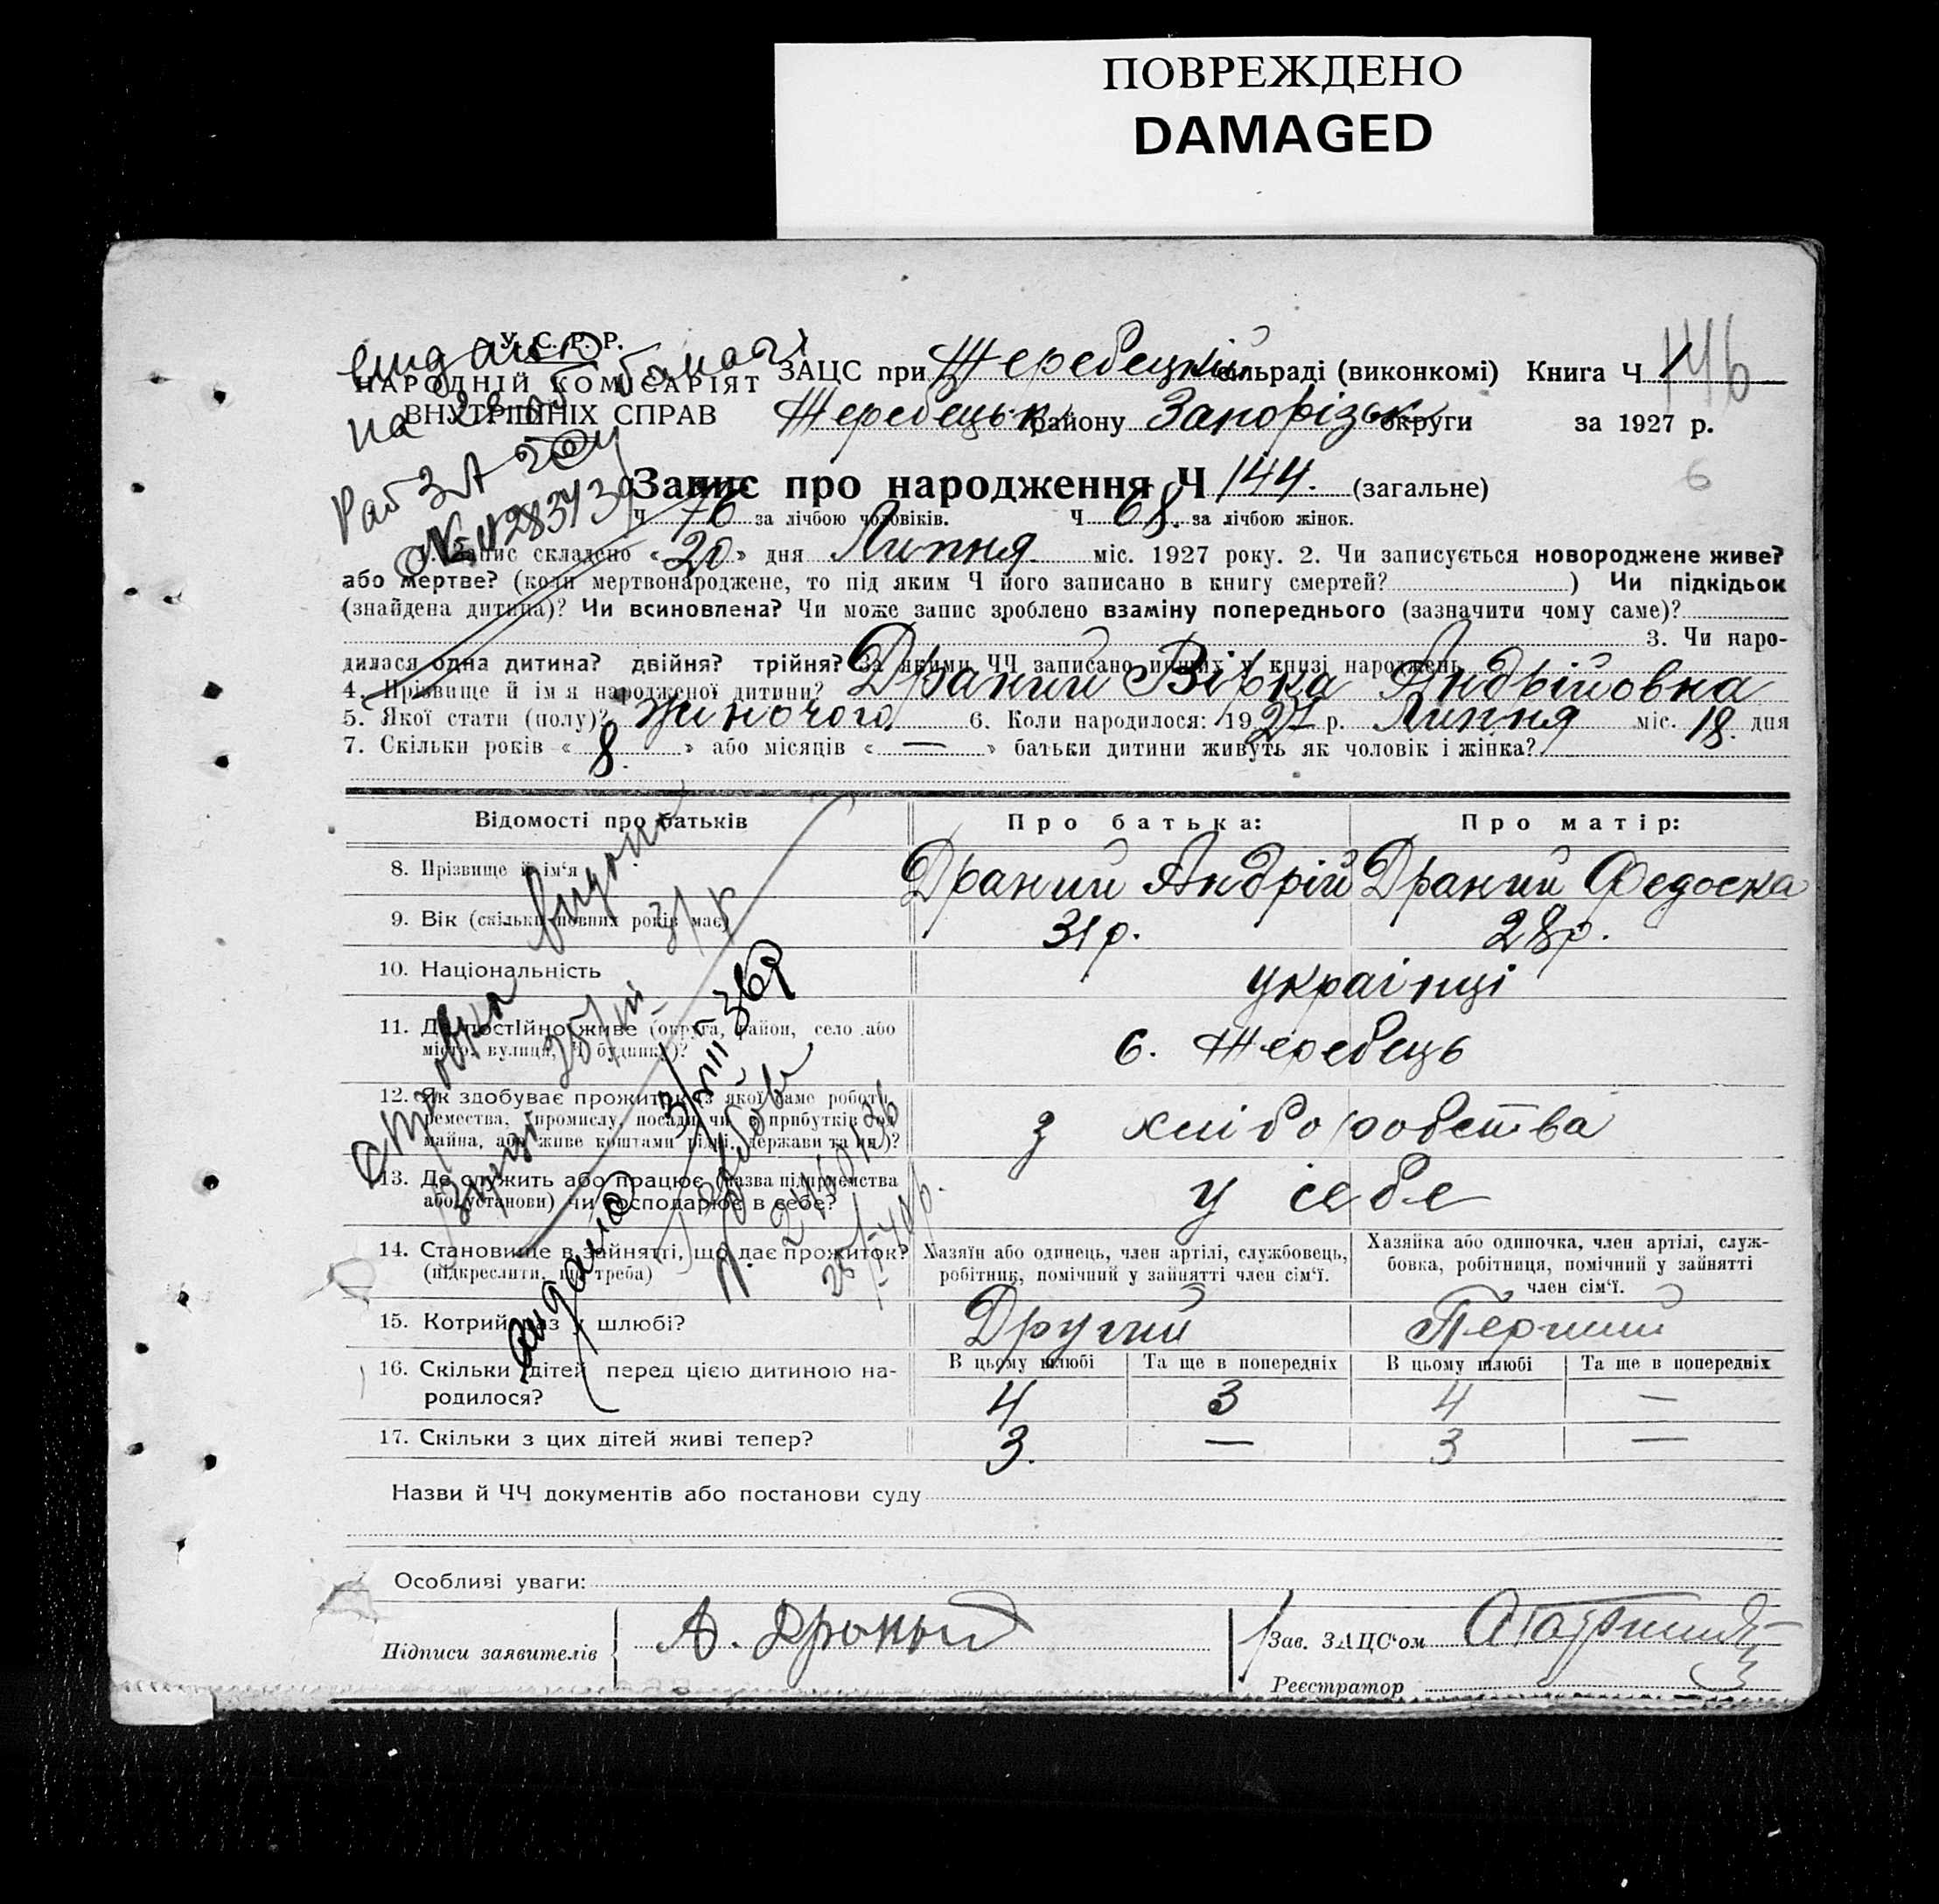 ПОВРЕЖДЕНО
DAMAGED
У. С. Р. Р.
НАРОДНІЙ КОМІСАРІЯТ
ВНУТРІШНІХ СПРАВ
ЗАЦС при Жеребецкій сільраді (виконкомі) Книга Ч 1
146
Жеребецьк району Запорізьк округи за 1927 р.
6
Запис про народження Ч 144. (загальне)
Ч 76 за лічбою чоловіків. Ч 68. за лічбою жінок.
1. Запис складено «20» дня Липня міс. 1927 року. 2. Чи записується новороджене живе?
або мертве? (коли мертвонароджене, то під яким Ч його записано в книгу смертей? ) Чи підкідьок
(знайдена дитина)? Чи всиновлена? Чи може запис зроблено взаміну попереднього (зазначити чому саме)?
3. Чи наро-
дилася одна дитина? двійня? трійня? За якими ЧЧ записано инших у книзі народжень
4. Прізвище й ім'я народженої дитини? Драний Вірка Андрійовна
5. Якої стати (полу)? Жиночого 6. Коли народилося: 1927 р. Липня міс. 18. дня
7. Скільки років « 8. » або місяців « — » батьки дитини живуть як чоловік і жінка?
Відомості про батьків Про батька: Про матір:
8. Прізвище й ім'я Драний Андрій Драний Федоска
9. Вік (скільки повних років має) 31 р. 28 р.
10. Національність українці
11. Де постІйно живе (округа, район, село або
місто, вулиця, Ч будинку)? с. Жеребець
12. Як здобуває прожиток (з якої саме роботи,
ремества, промислу, посади чи з прибутків од
майна, або живе коштами рідні, держави та ин.)? з хлібороб­ства
13. Де служить або працює (назва підприємства
або установи) чи господарює в себе? у себе
14. Становище в зайнятті, що дає прожиток?
(підкреслити, що треба)
Хазяїн або одинець, член артілі, службовець,
робітник, помічний у зайнятті член сім'ї.
Хазяйка або одиночка, член артілі, служ-
бовка, робітниця, помічний у зайнятті
член сім'ї.
15. Котрий раз у шлюбі? Другий Перший
В цьому шлюбі Та ще в попередніх В цьому шлюбі Та ще в попередніх
16. Скільки дітей перед цією дитиною на-
родилося? 4 3 4 —
17. Скільки з цих дітей живі тепер? 3. — 3 —
Назви й ЧЧ документів або постанови суду
Особливі уваги:
Підписи заявителів А. Драный
Зав. ЗАЦС'ом
Реєстратор